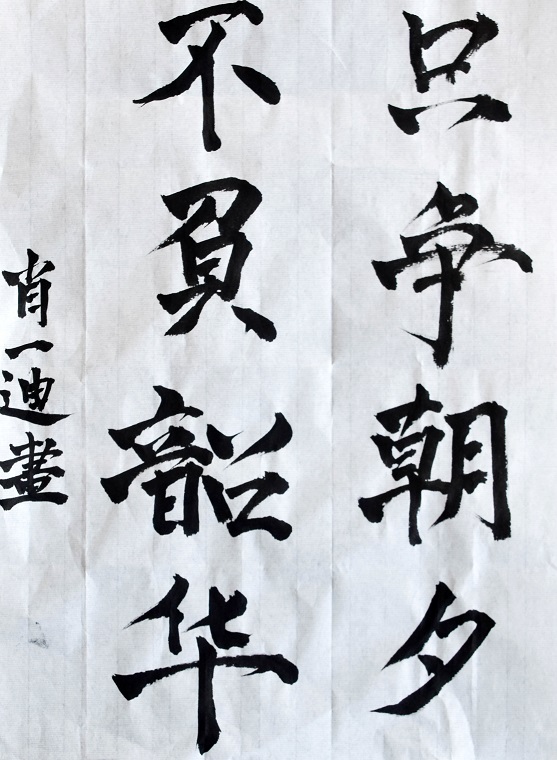 只争朝夕
不負韶华
肖一迪書